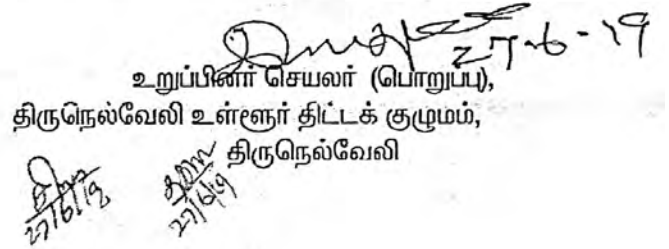 27-6-19
உறுப்பினர் செயலர் (பொறுப்பு),
திருநெல்வேலி உள்ளூர் திட்டக் குழுமம்,
திருநெல்வேலி
27/6/19
27/6/19